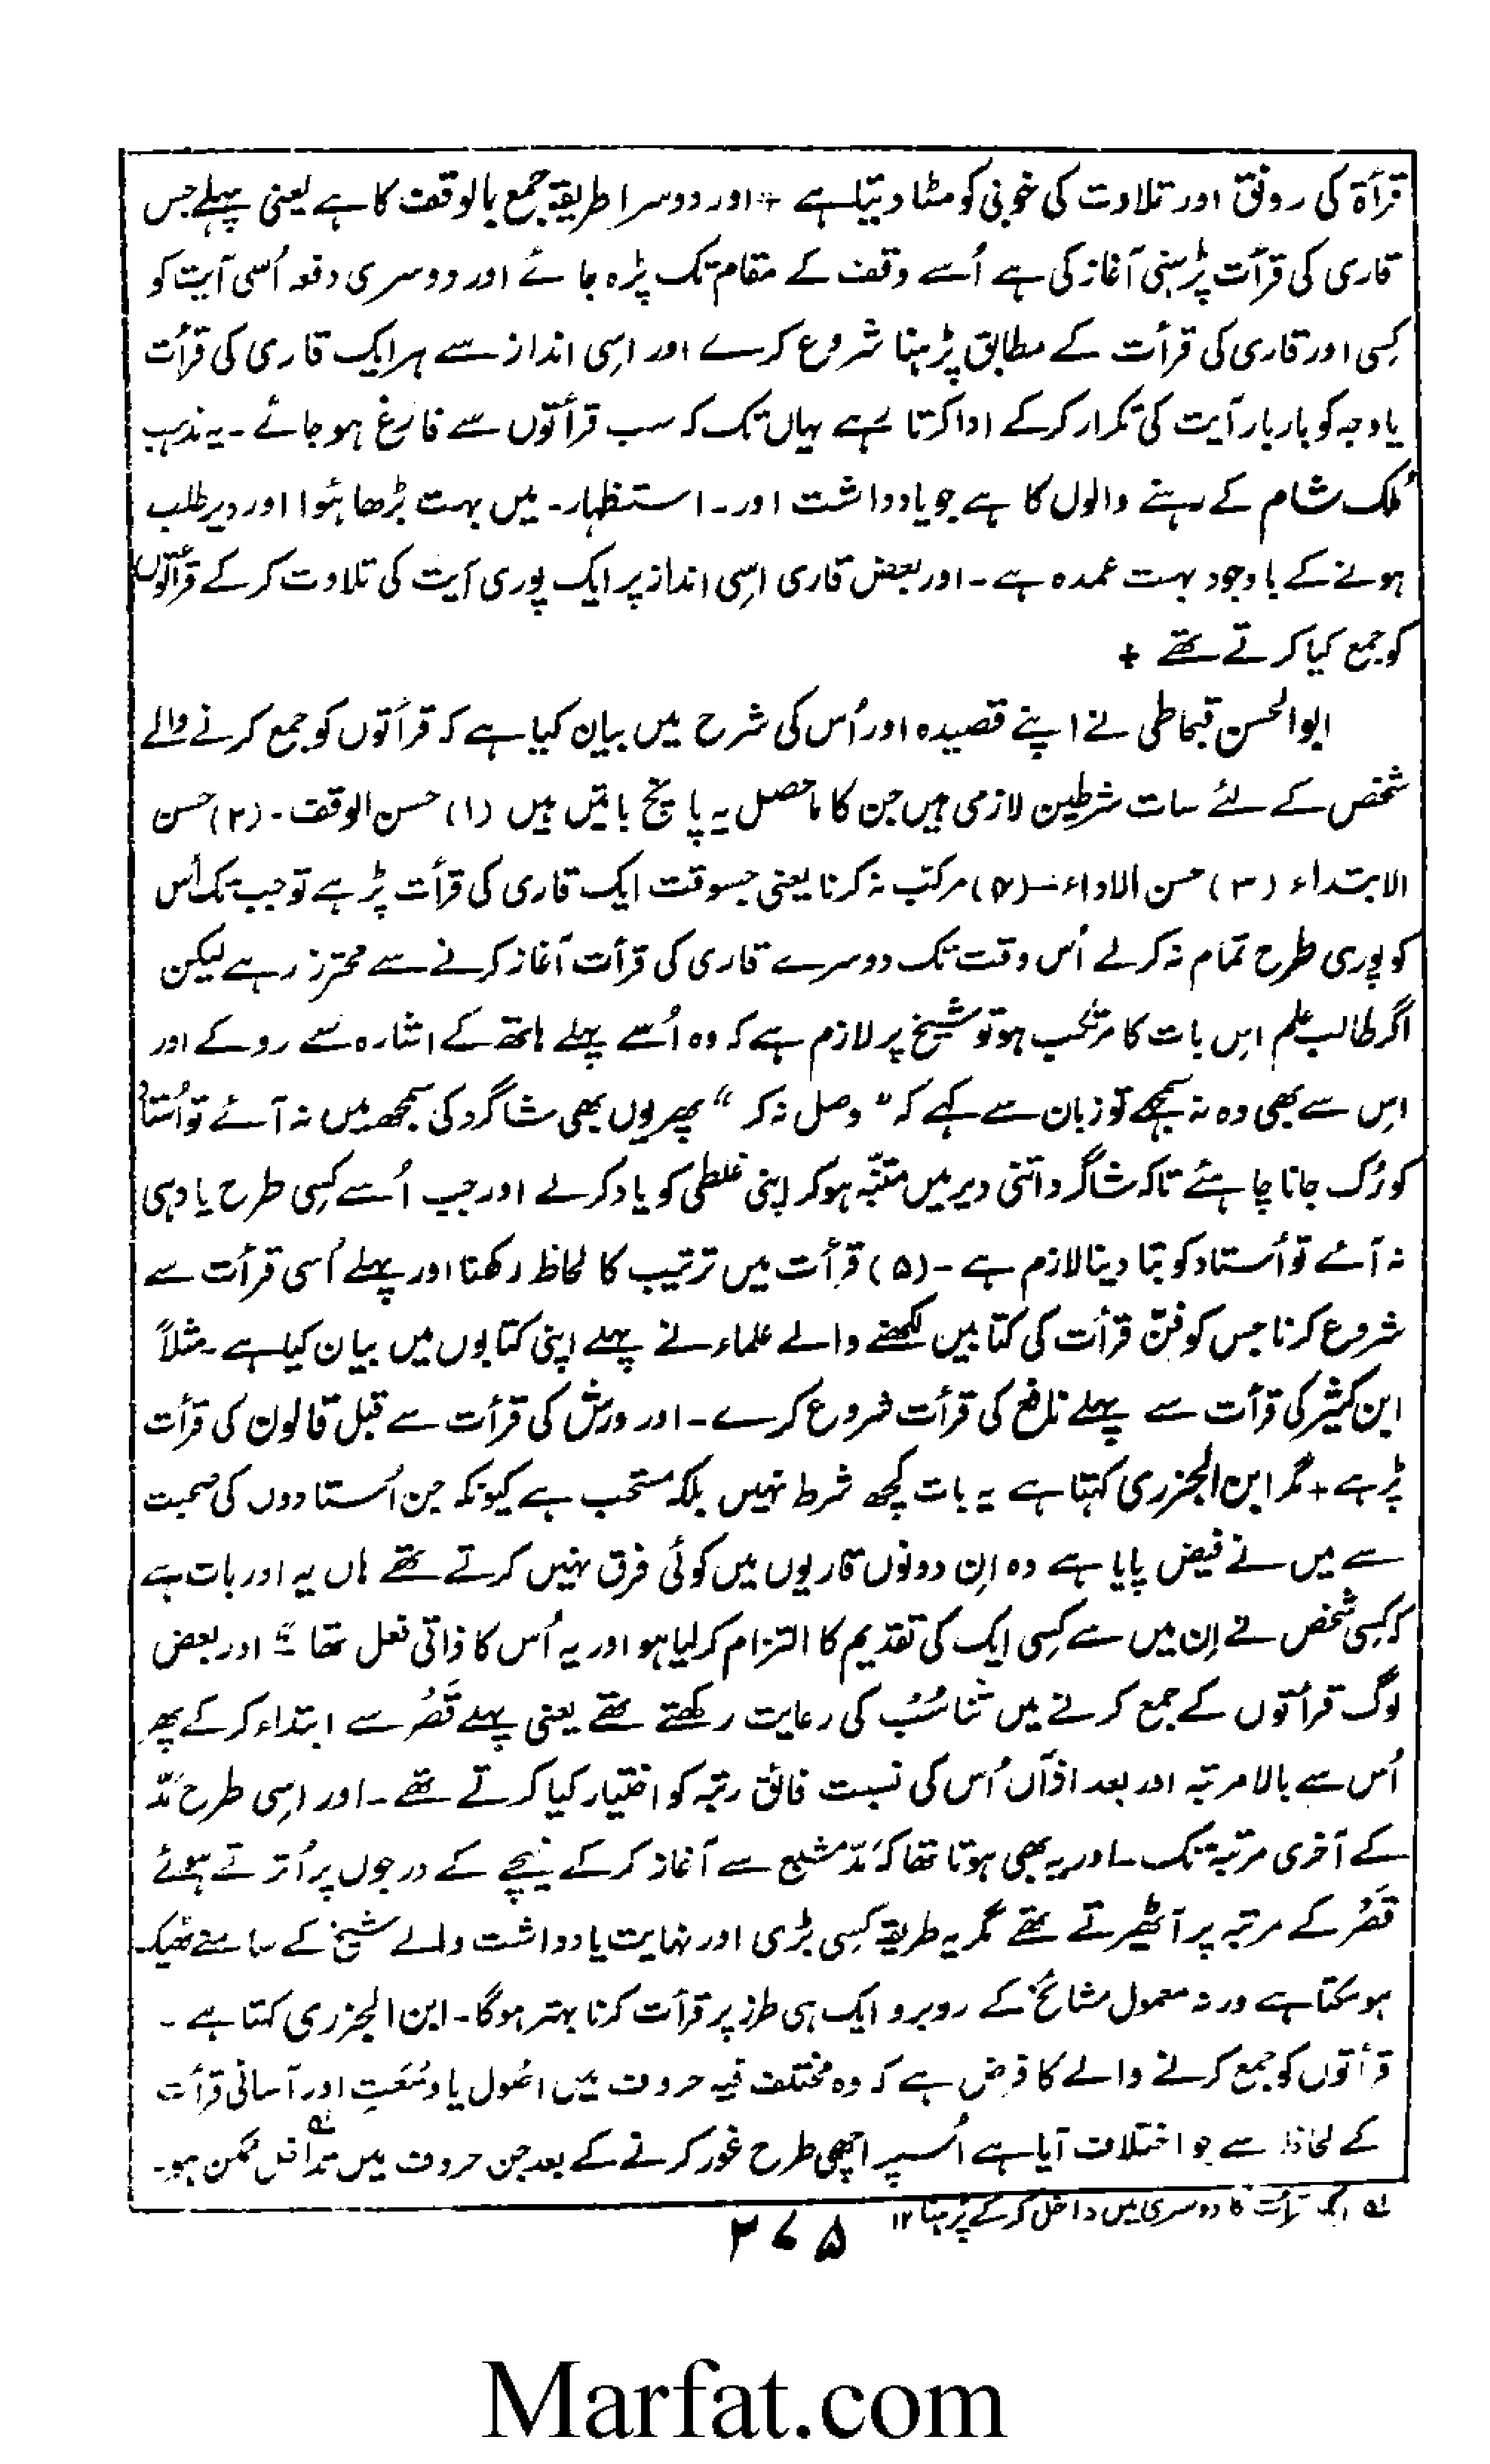 قرأۃ کی رونق اور تلاوت کی خوبی کو مٹا دیتا ہے + اور دوسرا طریقہ جمع بالوقف کا ہے یعنی پہلے جس
قاری کی قرأت پڑہنی آغاز کی ہے اُسے وقف کے مقام تک پڑہ جائے اور دوسری دفعہ اُسی آیت کو
کِسی اور قاری کی قرأت کے مطابق پڑہنا شروع کرے اور اسی انداز سے ہر ایک قاری کی قرأت
یا وجہ کو بار بار آیت کی تکرار کرکے ادا کرتا رہے یہاں تک کہ سب قرأتوں سے فارغ ہو جائے ۔ یہ مذہب
مُلک شام کے رہنے والوں کا ہے جو یادداشت اور ۔ استظہار ۔ میں بہت بڑھا ہُوا اور دیر طلب
ہونے کے باوجود بہت عمدہ ہے ۔ اور بعض قاری اِسی انداز پر ایک پوری آیت کی تلاوت کر کے قرأتوں
کو جمع کیا کرتے تھے +
ابو الحسن قیجاطی نے اپنے قصیدہ اور اُس کی شرح میں بیان کیا ہے کہ قرأتوں کو جمع کرنے والے
شخص کے لئے سات شرطیں لازمی ہیں جن کا ماحصل یہ پانچ باتیں ہیں (۱) حسن الوقف ۔ (۲) حسن
الابتداء (۳) حسن الاداء ۔ (۴) مرکب نہ کرنا یعنی جسوقت ایک قاری کی قرأت پڑہے تو جب تک اُس
کو پوری طرح تمام نہ کرلے اُس وقت تک دوسرے قاری کی قرأت آغاز کرنے سے محترز رہے لیکن
اگر طالب علم اِس بات کا مرتکب ہو تو شیخ پر لازم ہے کہ وہ اُسے پہلے ہاتھ کے اشارہ سے روکے اور
اِس سے بھی وہ نہ سمجھے تو زبان سے کہے کہ “ وصل نہ کر “ پھر یوں بھی شاگرد کی سمجھ میں نہ آئے تو اُستاد
کو رُک جانا چاہئے تاکہ شاگرد اتنی دیر میں متنبّہ ہوکر اپنی غلطی کو یاد کرلے اور جب اُسے کِسی طرح یاد ہی
نہ آئے تو اُستاد کو بتا دینا لازم ہے ۔ (۵) قرأت میں ترتیب کا لحاظ رکھنا اور پہلے اُسی قرأت سے
شروع کرنا جس کو فنّ قرأت کی کتابیں لکھنے والے علماء نے پہلے اپنی کتابوں میں بیان کیا ہے ۔ مثلاً
ابن کثیر کی قرأت سے پہلے نافع کی قرأت شروع کرے ۔ اور ورش کی قرأت سے قبل قالون کی قرأت
پڑہے + مگر ابن الجزری کہتا ہے یہ بات کچھ شرط نہیں بلکہ مستحب ہے کیونکہ جن اُستادوں کی صحبت
سے میں نے فیض پایا ہے وہ اِن دونوں قاریوں میں کوئی فرق نہیں کرتے تھے ہاں یہ اور بات ہے
کہ کِسی شخص نے اِن میں سے کِسی ایک کی تقدیم کا التزام کرلیا ہو اور یہ اُس کا ذاتی فعل تھا ۔ اور بعض
لوگ قرأتوں کے جمع کرنے میں تناسُب کی رعایت رکھتے تھے یعنی پہلے قَصْر سے ابتداء کر کے پھر
اُس سے بالا مرتبہ اور بعد ازآں اُس کی نسبت فائق رتبہ کو اختیار کیا کرتے تھے ۔ اور اِسی طرح مَدّ
کے آخری مرتبہ تک ۔ اور یہ بھی ہوتا تھا کہ مَدّ مشبع سے آغاز کرکے نیچے کے درجوں پر اُترتے ہوئے
قَصْر کے مرتبہ پر آٹھیرتے تھے مگر یہ طریقہ کسِی بڑی اور نہایت یادداشت والے شیخ کے سامنے ٹھیک
ہوسکتا ہے ورنہ معمول مشائخ کے روبرو ایک ہی طرز پر قرأت کرنا بہتر ہوگا ۔ ابن الجزری کہتا ہے ۔
قرأتوں کو جمع کرنے والے کا فرض ہے کہ وہ مختلف فیہ حروف میں اصُول یا وسُعت اور آسانی قرأت
کے لحاظ سے جو اختلاف آیا ہے اُسپر اچھی طرح غور کرنے کے بعد جن حروف میں تداخل ممکن ہو۔
لہ ایک قرأت کا دوسری میں داخل کرکے پڑہنا ۱۲
۲۷۵
Marfat.com